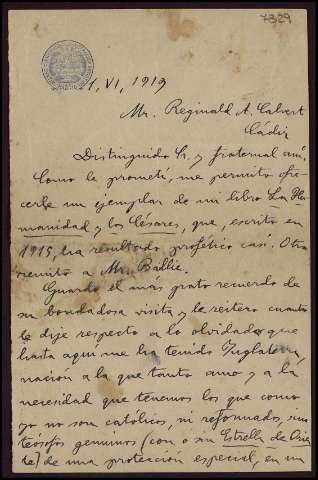 7329
1, VI, 1919
Mr. Reginald A. Calvert
Cádiz
Distinguido Sr. y fraternal am.
Como le prometí, me permito ofre-
cerle un ejemplar de mi libro La Hu-
manidad y los Césares, que, escrito en
1915, ha resultado profético casi. Otro
remito a Mr. Baillie.
Guardo el más grato recuerdo de
su bondadosa visita y le reitero cuanto
le dije respecto a lo olvidados que
hasta aquí me ha tenido Inglaterra,
nación a la que tanto amo y a la
necesidad que tenemos los que como
yo no son católicos, ni reformados, sino
teósofos genuinos (con o sin Estrella de Orien
te) de una protección especial, en un